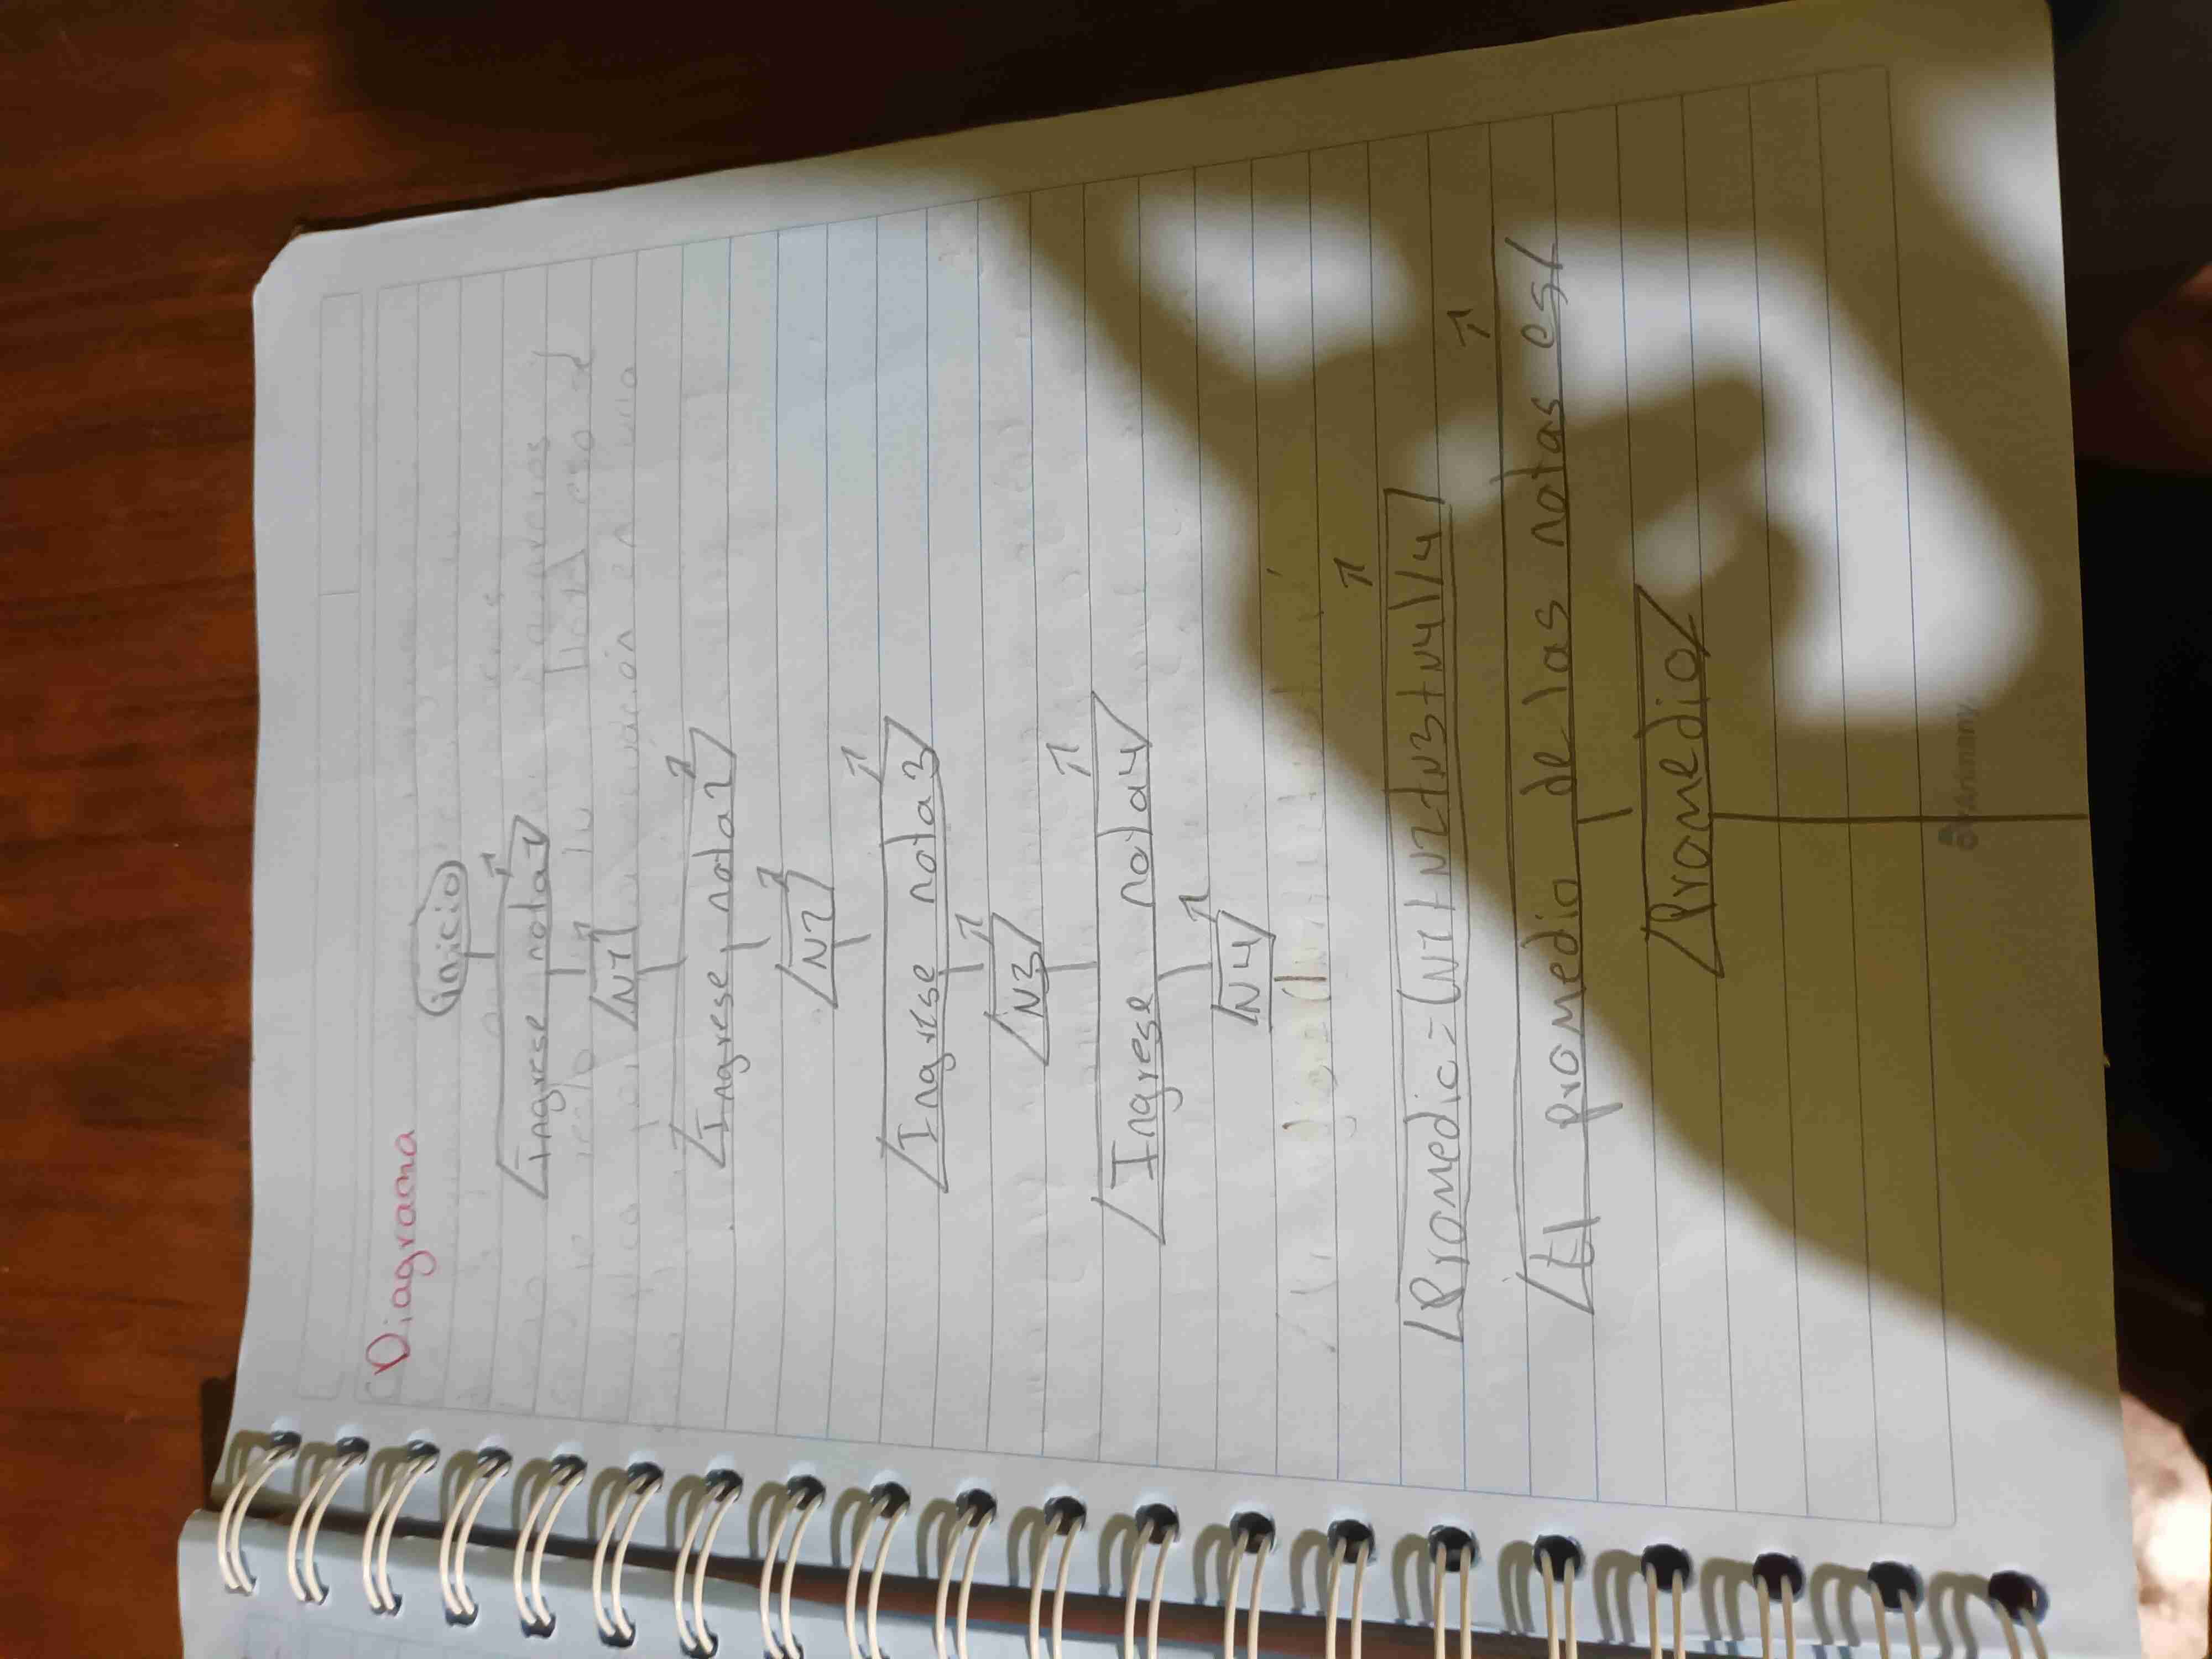 Diagrama
inicio
Ingrese nota1
N1
Ingrese nota2
N2
Ingrese nota3
N3
Ingrese nota4
N4
Promedio=(N1+N2+N3+N4)/4
El promedio de las notas es
Promedio